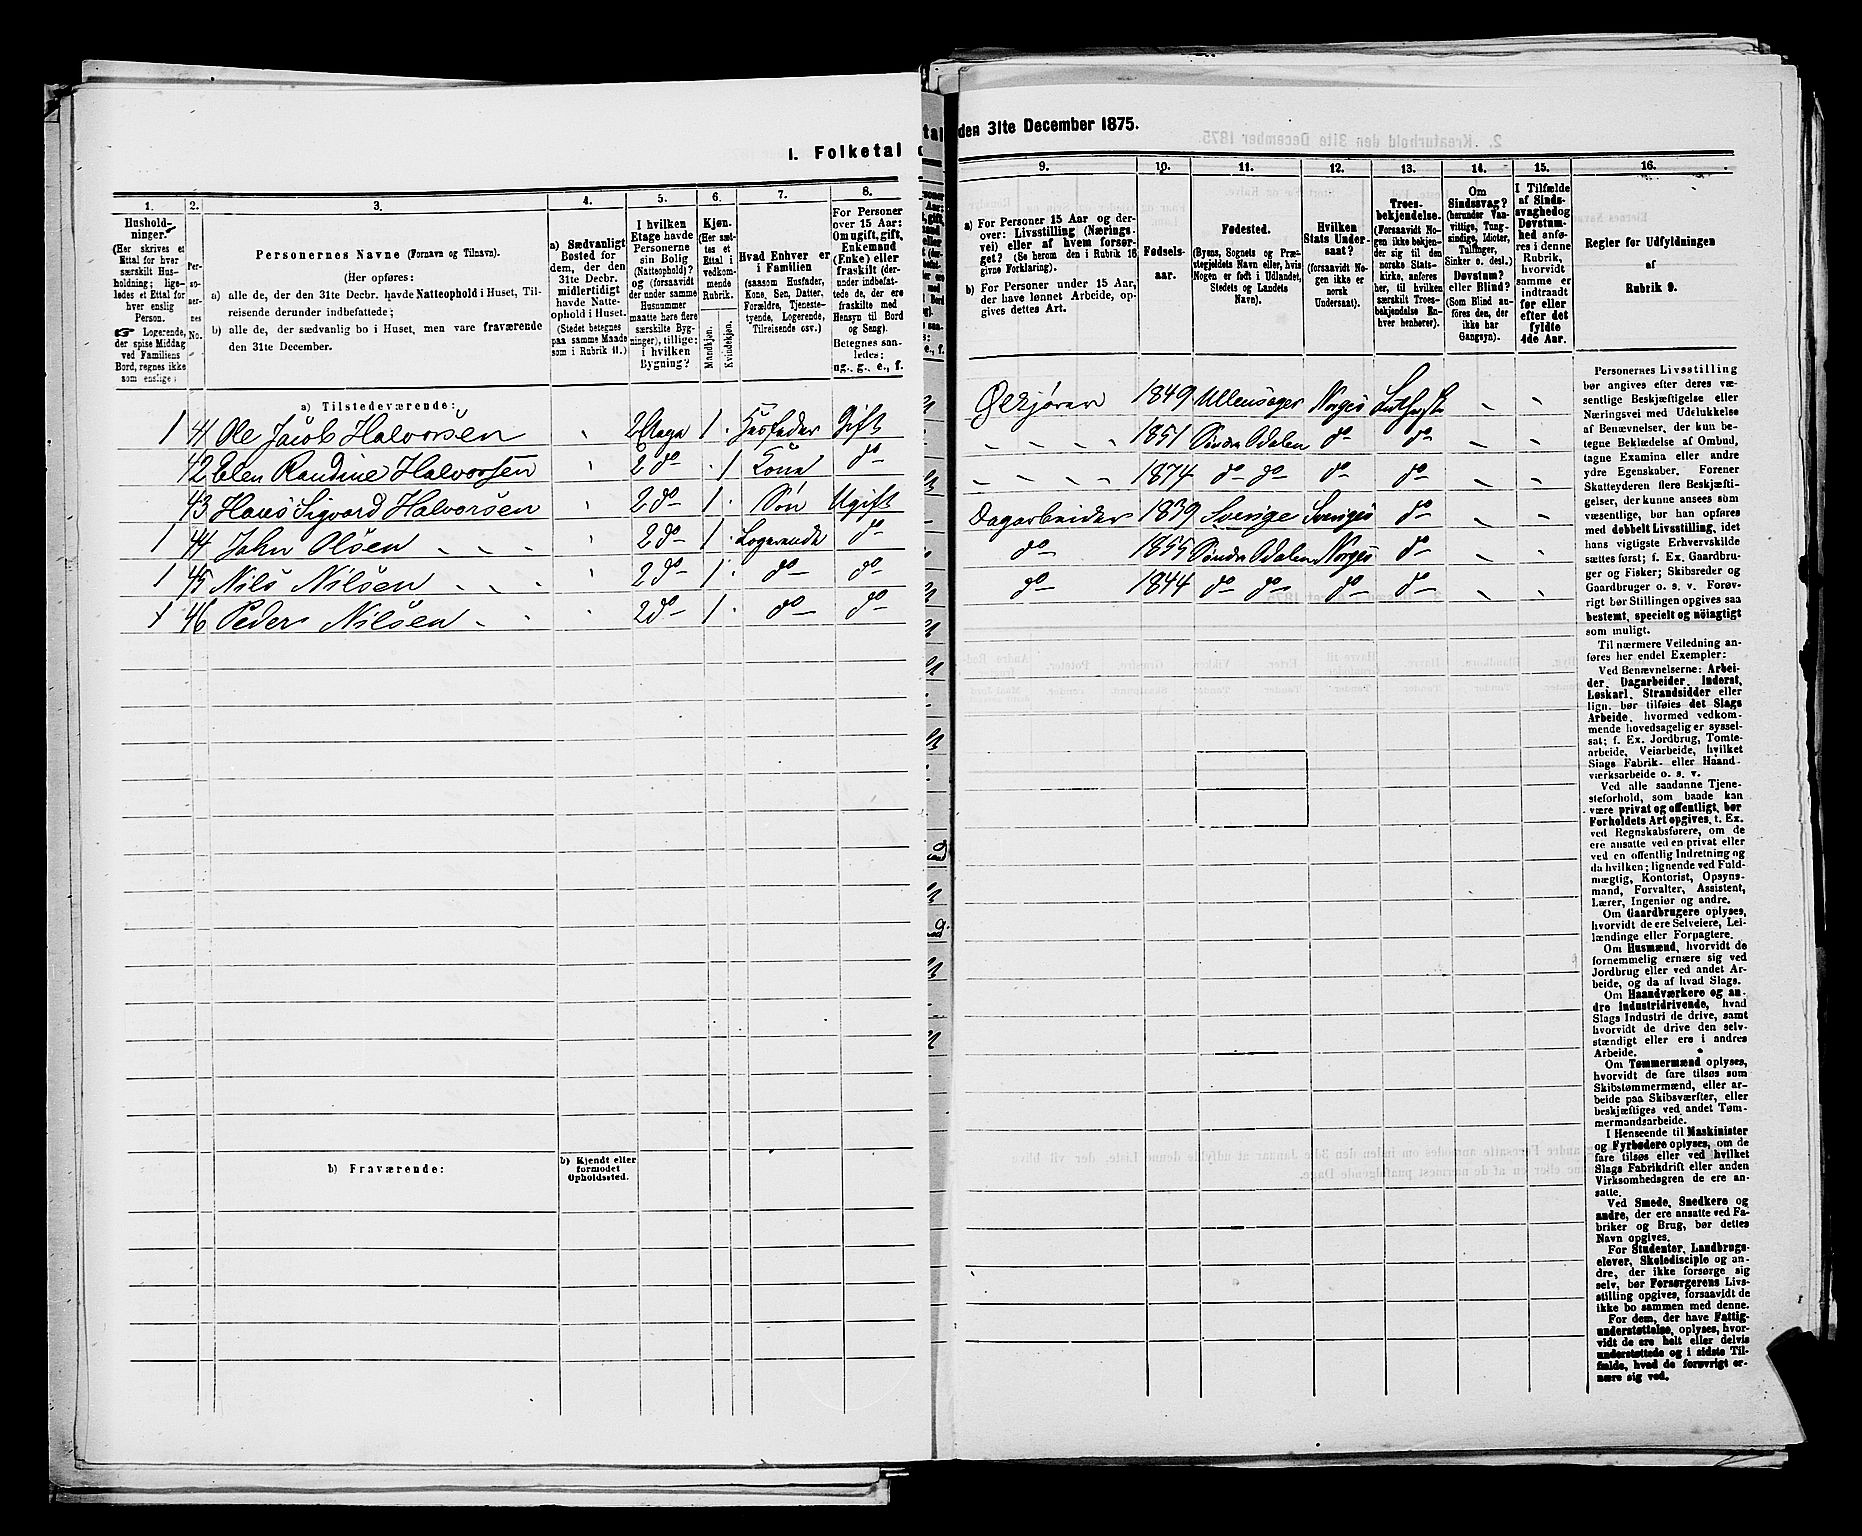 I. Folketal
1. 2. 3. 4. 5. 6. 7. 8.
Hushold-
ninger.
(Her skrives et
Ettal for hver
særskilt Hus-
holdning; lige-
ledes et Ettal for
hver enslig
Person.
☞ Logerende,
der spise Middag
ved Familiens
Bord, regnes ikke
som enslige.)
Per-
so-
ner-
nes
No.
Personernes Navne (Fornavn og Tilnavn).
(Her opføres:
a) alle de, der den 31te Decbr. havde Natteophold i Huset, Til-
reisende derunder indbefattede;
b) alle de, der sædvanlig bo i Huset, men vare fraværende
den 31te December.
a) Sædvanligt
Bosted for
dem, der den
31te Decbr.
midlertidigt
havde Natte-
ophold i Huset.
(Stedet betegnes
paa samme Maade
som i Rubrik 11.)
I hvilken
Etage havde
Personerne
sin Bolig
(Natteophold)?
og (forsaavidt
der under samme
Husnummer
maatte høre flere
særskilte Byg-
ninger), tillige:
i hvilken
Bygning?
Kjøn.
(Her sæt-
tes et
Ettal i
vedkom-
mende
Rubrik.
Mandkjøn.
Kvindekjøn.
Hvad Enhver er
i Familien
(saasom Husfader,
Kone, Søn, Datter,
Forældre, Tjeneste-
tyende, Logerende,
Tilreisende osv.)
For Personer
over 15 Aar:
Om ugift, gift,
Enkemand
(Enke) eller
fraskilt (der-
under indbefat-
tede de, der ere
fraskilte med
Hensyn til Bord
og Seng).
Betegnes saa-
ledes:
ug., g., e., f.
a) Tilstedeværende:
1 41 Ole Jacob Halvorsen 2 Etage 1 Husfader Gift
42 Elen Randine Halvorsen 2 do 1 Kone do
43 Hans Sigvard Halvorsen 2 do 1 Søn Ugift
1 44 John Olsen 2 do 1 Logerende do
1 45 Nils Nilsen 2 do 1 do do
1 46 Peder Nilsen 2 do 1 do do
b) Fraværende:
b) Kjendt eller
formodet
Opholdssted.
den 31te December 1875.
9. 10. 11. 12. 13. 14. 15. 16.
a) For Personer 15 Aar og der-
over: Livsstilling (Nærings-
vei) eller af hvem forsør-
get? (Se herom den i Rubrik 16
givne Forklaring).
b) For Personer under 15 Aar,
der have lønnet Arbeide, op-
gives dettes Art.
Fødsels-
aar.
Fødested.
(Byens, Sognets og Præ-
stegjeldets Navn eller, hvis
Nogen er født i Udlandet,
Stedets og Landets
Navn).
Hvilken
Stats Under-
saat?
(forsaavidt No-
gen ikke er
norsk
Undersaat).
Troes-
bekjendelse.
(Forsaavidt No-
gen ikke bekjen-
der sig til den
norske Stats-
kirke, anføres
her, til hvilken
særskilt Troes-
bekjendelse En-
hver henhører).
Om
Sindssvag?
(herunder Van-
vittige, Tung-
sindige, Idioter,
Tullinger,
Sinker o. desl.)
Døvstum?
eller Blind?
(Som Blind an-
føres den, der
ikke har
Gangsyn).
I Tilfælde
af Sinds-
svaghed og
Døvstum-
hed anfø-
res i denne
Rubrik,
hvorvidt
samme er
indtraadt
før eller
efter det
fyldte
4de Aar.
Regler for Udfyldningen
af
Rubrik 9.
1849 Ullensager Norges
1851 Søndre Odalen do do
1874 do do do do
Dagarbeider 1839 Sverige Sveriges do
do 1855 Søndre Odalen Norges do
do 1844 do do do do
Personernes Livsstilling
bør angives efter deres væ-
sentlige Beskjæftigelse eller
Næringsvei med Udelukkelse
af Benævnelser, der kun be-
tegne Beklædelse af Ombud,
tagne Examina eller andre
ydre Egenskaber. Forener
Skatteyderen flere Beskjæfti-
gelser, der kunne ansees som
væsentlige, bør han opføres
med dobbelt Livsstilling, idet
hans vigtigste Erhvervskilde
sættes først; f. Ex. Gaardbru-
ger og Fisker; Skibsreder og
Gaardbruger o. s. v. Forøv-
rigt bør Stillingen opgives saa
bestemt, specielt og nöiagtigt
som muligt.
Til nærmere Veiledning an-
føres her endel Exempler:
Ved Benævnelserne: Arbei-
der, Dagarbeider, Inderst,
Løskarl, Strandsidder eller
lign. bør tilføies det Slags
Arbeide, hvormed vedkom-
mende hovedsagelig er syssel-
sat; f. Ex. Jordbrug, Tomte-
arbeide, Veiarbeide, hvilket
Slags Fabrik- eller Haand-
værksarbeide o. s. v.
Ved alle saadanne Tjene-
steforhold, som baade kan
være privat og offentligt, bør
Forholdets Art opgives, t. Ex.
ved Regnskabsførere, om de
ere ansatte ved en privat eller
ved en offentlig Indretning og
da hvilken; lignende ved Fuld-
mægtig, Kontorist, Opsyns-
mand, Forvalter, Assistent,
Lærer, Ingeniør og andre.
Om Gaardbrugere oplyses,
hvorvidt de ere Selveiere, Lei-
lændinge eller Forpagtere.
Om Husmænd, hvorvidt de
fornemmelig ernære sig ved
Jordbrug eller ved andet Ar-
beide, og da af hvad Slags.
Om Haandværkere og an-
dre Industridrivende, hvad
Slags Industri de drive, samt
hvorvidt de drive den selv-
stændigt eller ere i andres
Arbeide.
Om Tømmermænd oplyses,
hvorvidt de fare tilsøs som
Skibstømmermænd, eller ar-
beide paa Skibsværfter, eller
beskjæftiges ved andet Tøm-
mermandsarbeide.
I Henseende til Maskinister
og Fyrbødere oplyses, om de
fare tilsøs eller ved hvilket
Slags Fabrikdrift eller anden
Virksomhedsgren de ere an-
satte.
Ved Smede, Snedkere og
andre, der ere ansatte ved Fa-
briker og Brug, bør dettes
Navn opgives.
For Studenter, Landbrugs-
elever, Skoledisciple og an-
dre, der ikke forsørge sig
selv, bør Forsørgerens Livs-
stilling opgives, forsaavidt de
ikke bo sammen med denne.
For dem, der have Fattig-
understøttelse, oplyses, hvor-
vidt de ere helt eller delvis
understøttede og i sidste Til-
fælde, hvad de forøvrigt er-
nære sig ved.